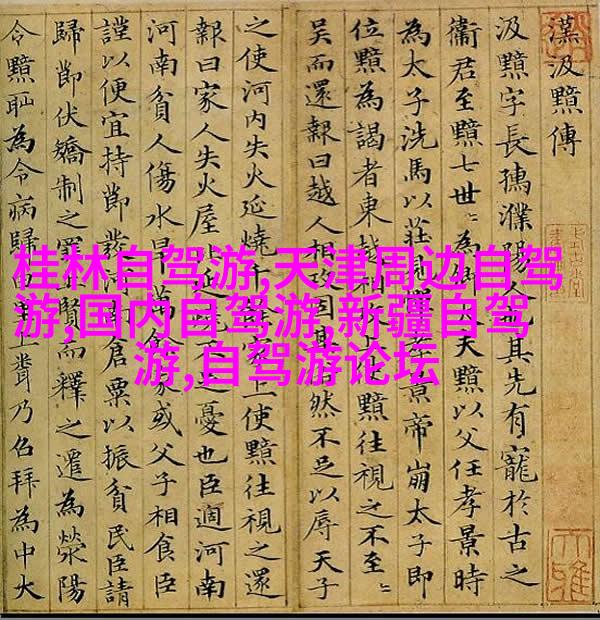 漢汲黯傳
汲黯字長孺濮陽人也其先有寵於古之
衛君至黯七世〻為卿大夫黯以父任孝景時
為太子洗馬以莊見孝景帝崩太子即
位黯為謁者東越相黯往視之不至〻
吳而還報曰越人相攻固其俗然不足以辱天子
之使河內失火延燒千餘家上使黯往視之還
報曰家人失火屋比延燒不足憂也臣適河南
河南貧人傷水旱萬餘家或父子相食臣
謹以便宜持節發河南倉粟以振貧民臣請
歸節伏矯制之罪上賢而釋之遷為滎陽
令黯恥為令病歸田里上聞乃召拜為中大
桂林自驾游,天津周边自驾
游,国内自驾游,新疆自驾
游,自驾游论坛